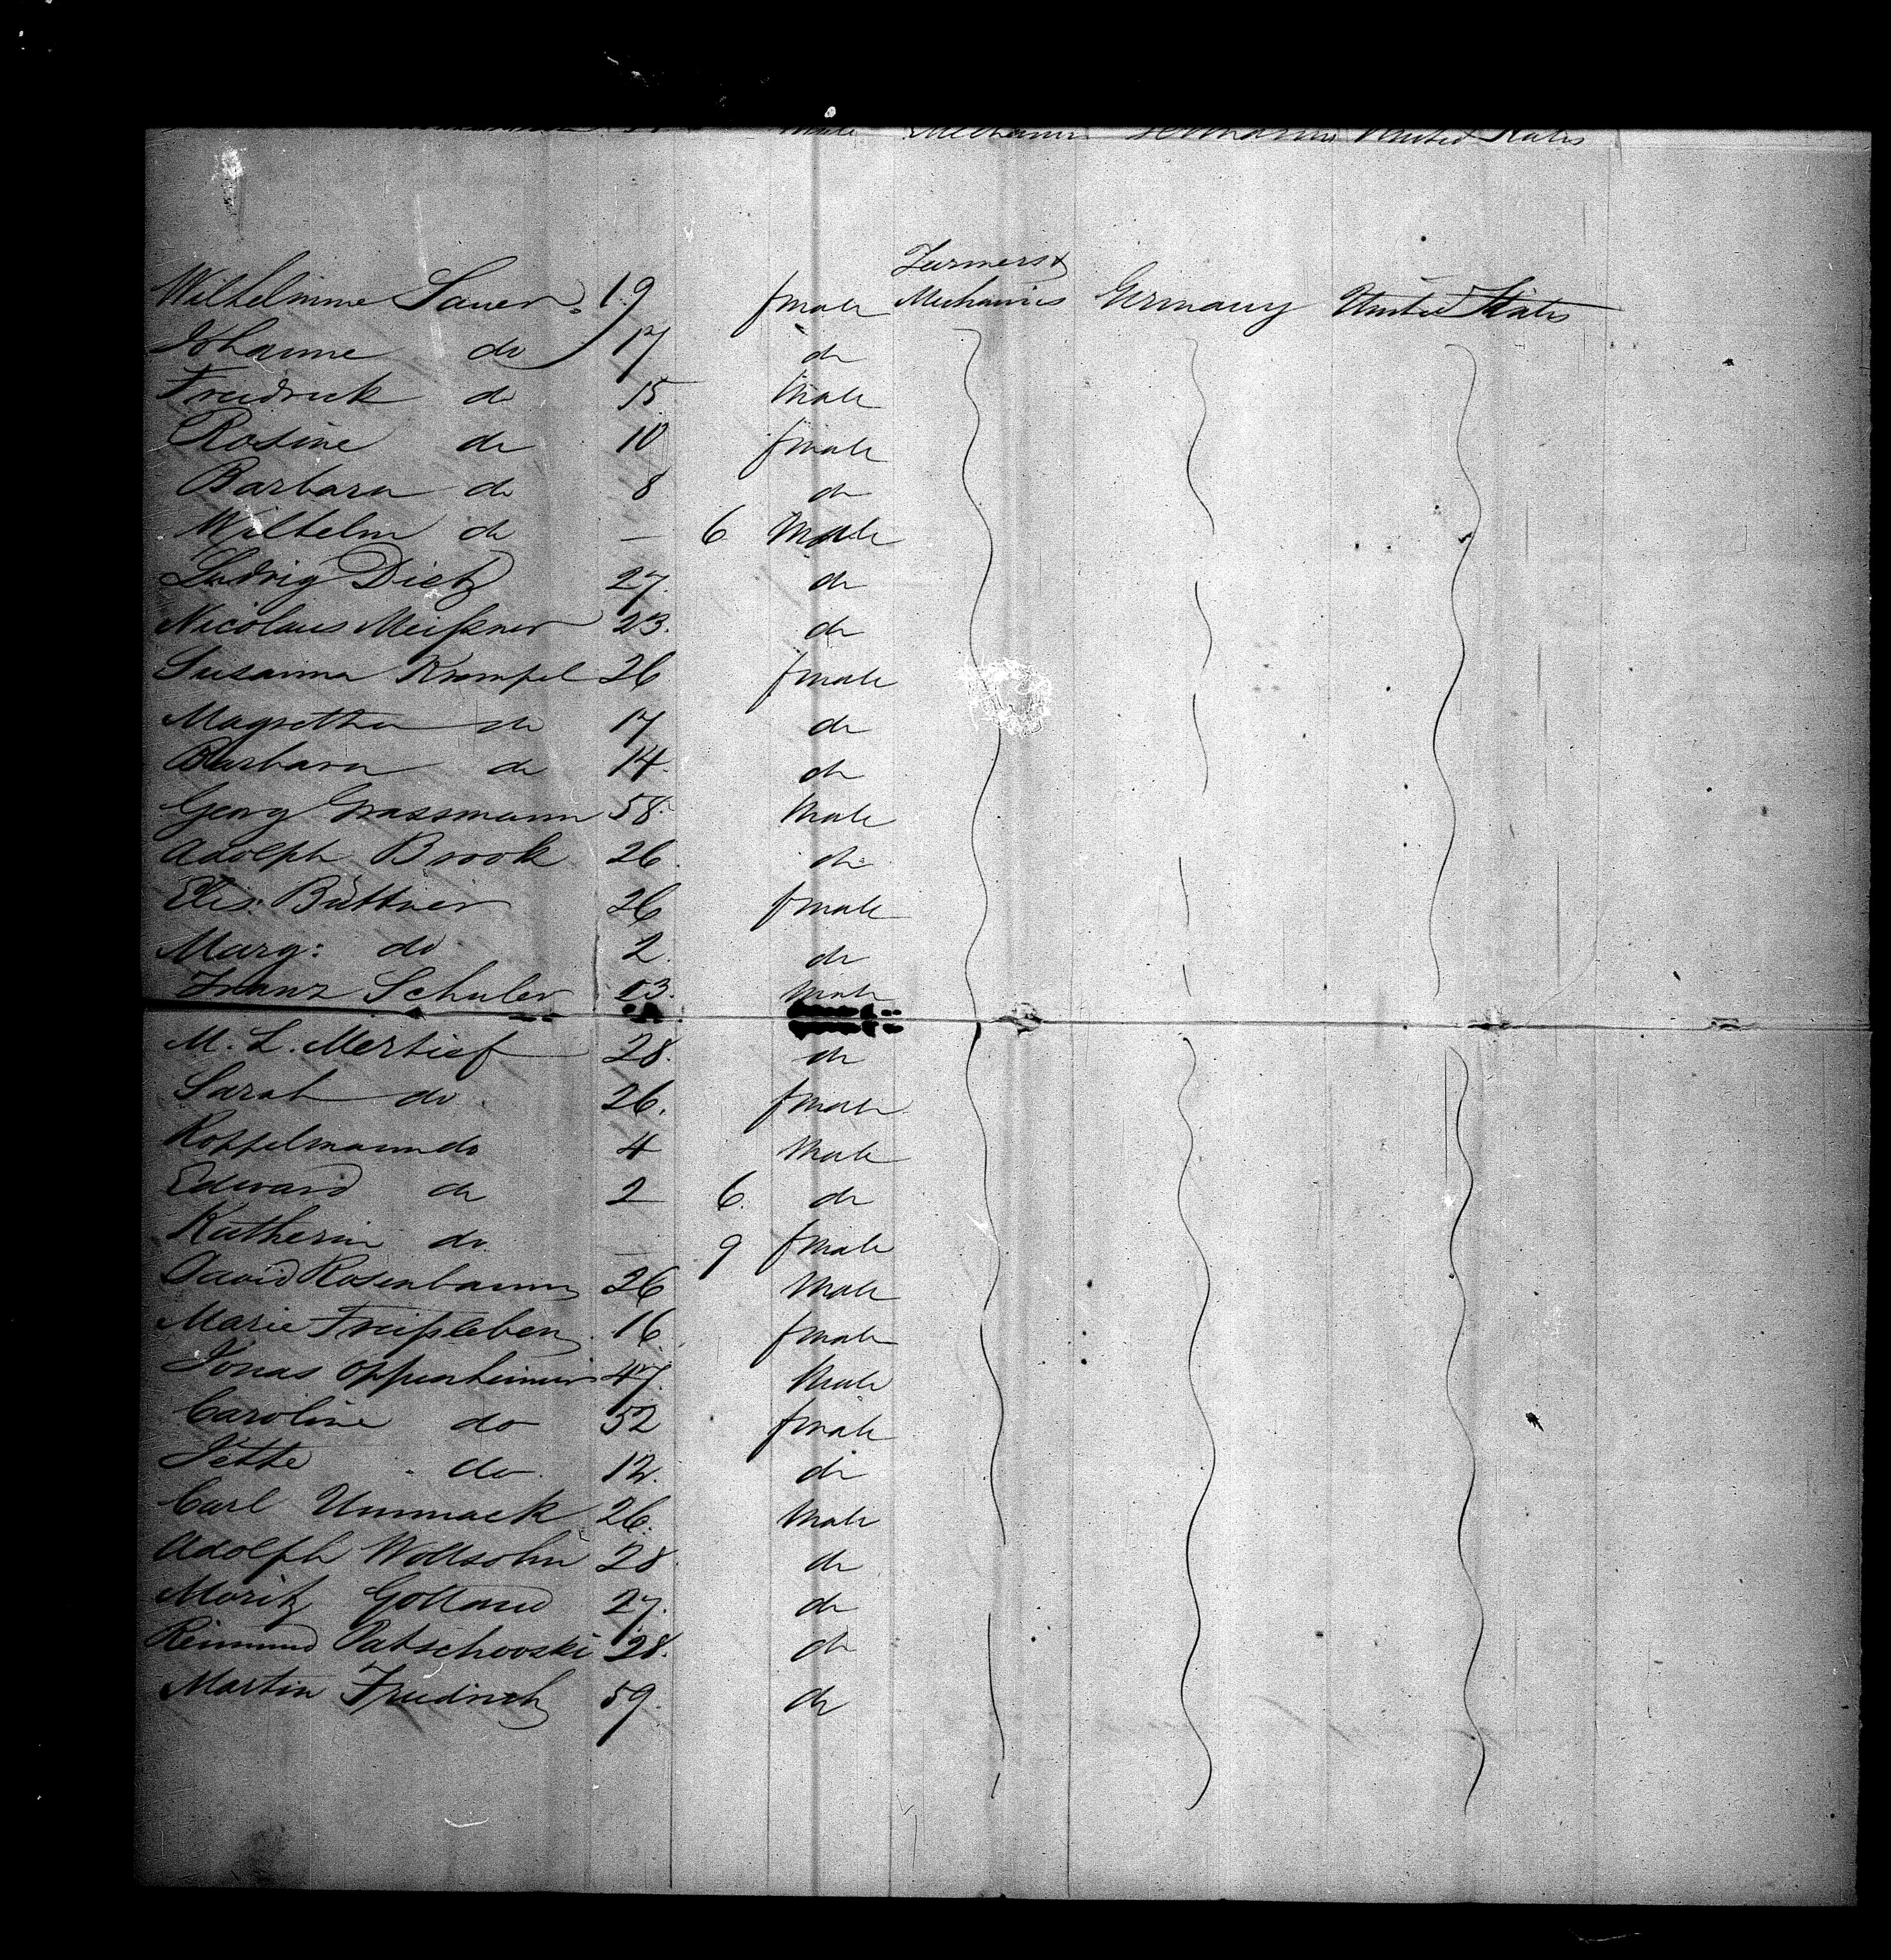 male Mechanic Germany United States
Farmers &
Wilhelmine Sauer 19 female Mechanics Germany United States
Johanne do 17 do
Friedrick do 15 Male
Rosine do 10 female
Barbara do 8 do
Wilhelm do — 6 Male
Ludwig Dietz 27. do
Nicolaus Meißner 23. do
Susanna Krompel 26 female
Magretha do 17 do
Barbara do 14. do
Georg Grassmann 58. Male
Adolph Brook 26. do
Elis: Büttner 26 female
Marg: do 2. do
Franz Schuler 23. Male
M. L. Mertief 28. do
Sarah do 26. female
Koppelmann do 4 Male
Edward do 2 6. do
Katherin do — 9 female
David Rosenbaum 26 Male
Marie Freißleben 16. female
Jonas Oppenheimer 47. Male
Caroline do 52 female
Jette do 12. do
Carl Ummack 26. Male
Adolph Wollsohn 28. do
Moritz Golland 27. do
Reimund Patschowski 28. do
Martin Friedrich 59. do